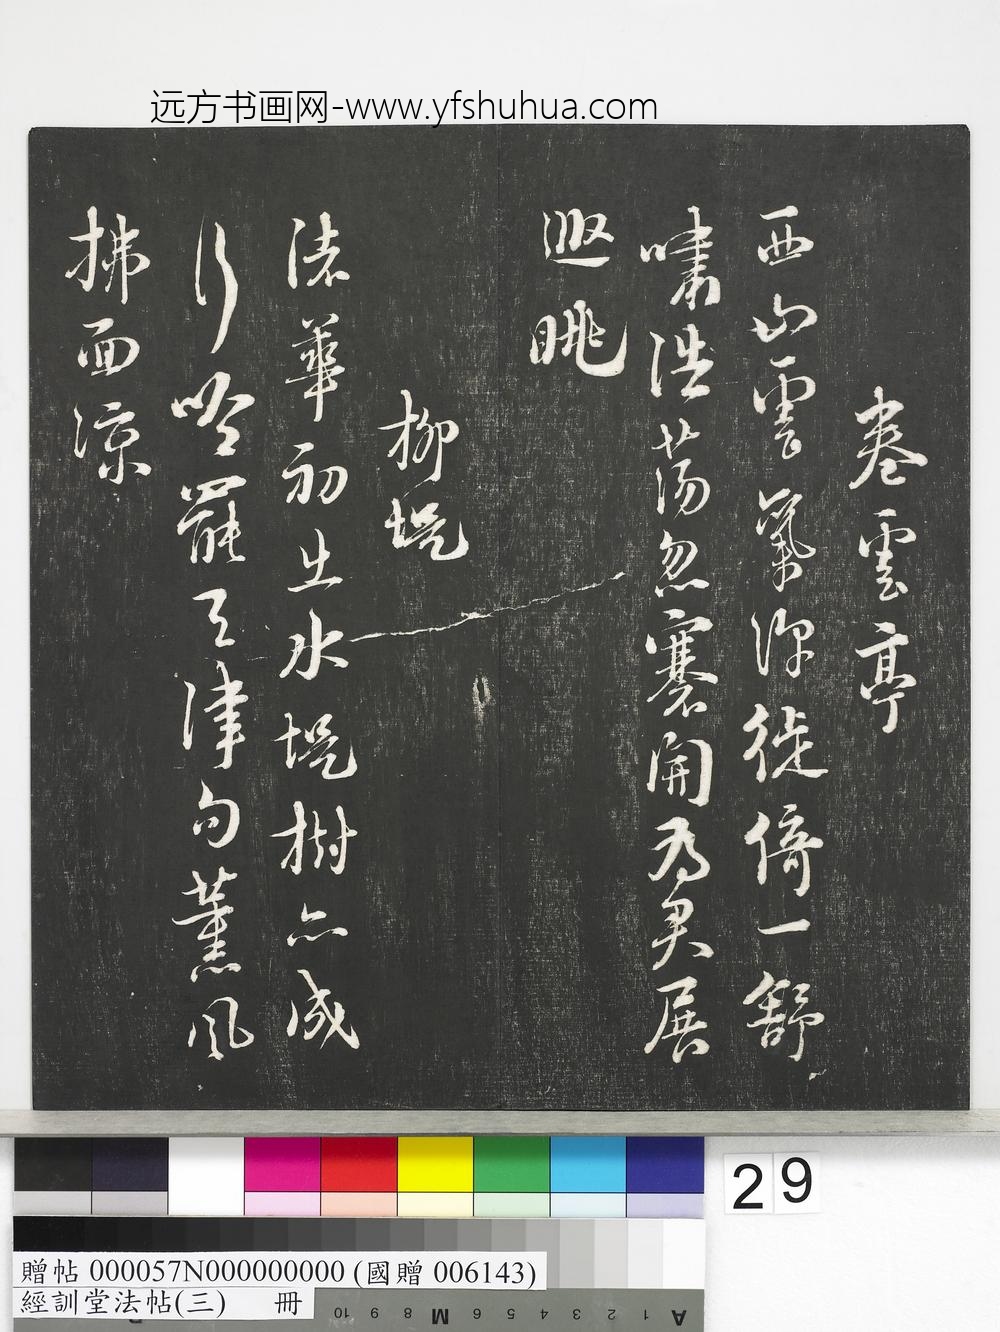 远方书画网-www.yfshuhua.com
卷雲亭
西山雲氣深徙倚一舒
嘯浩蕩忽褰開為君展
遐眺
柳堤
渚華初出水堤樹亦成
行吟罷天津句薰風
拂面涼
29
贈帖 000057N000000000 (國贈 006143)
經訓堂法帖(三) 冊
A 1 2 3 4 5 6 M 8 9 10